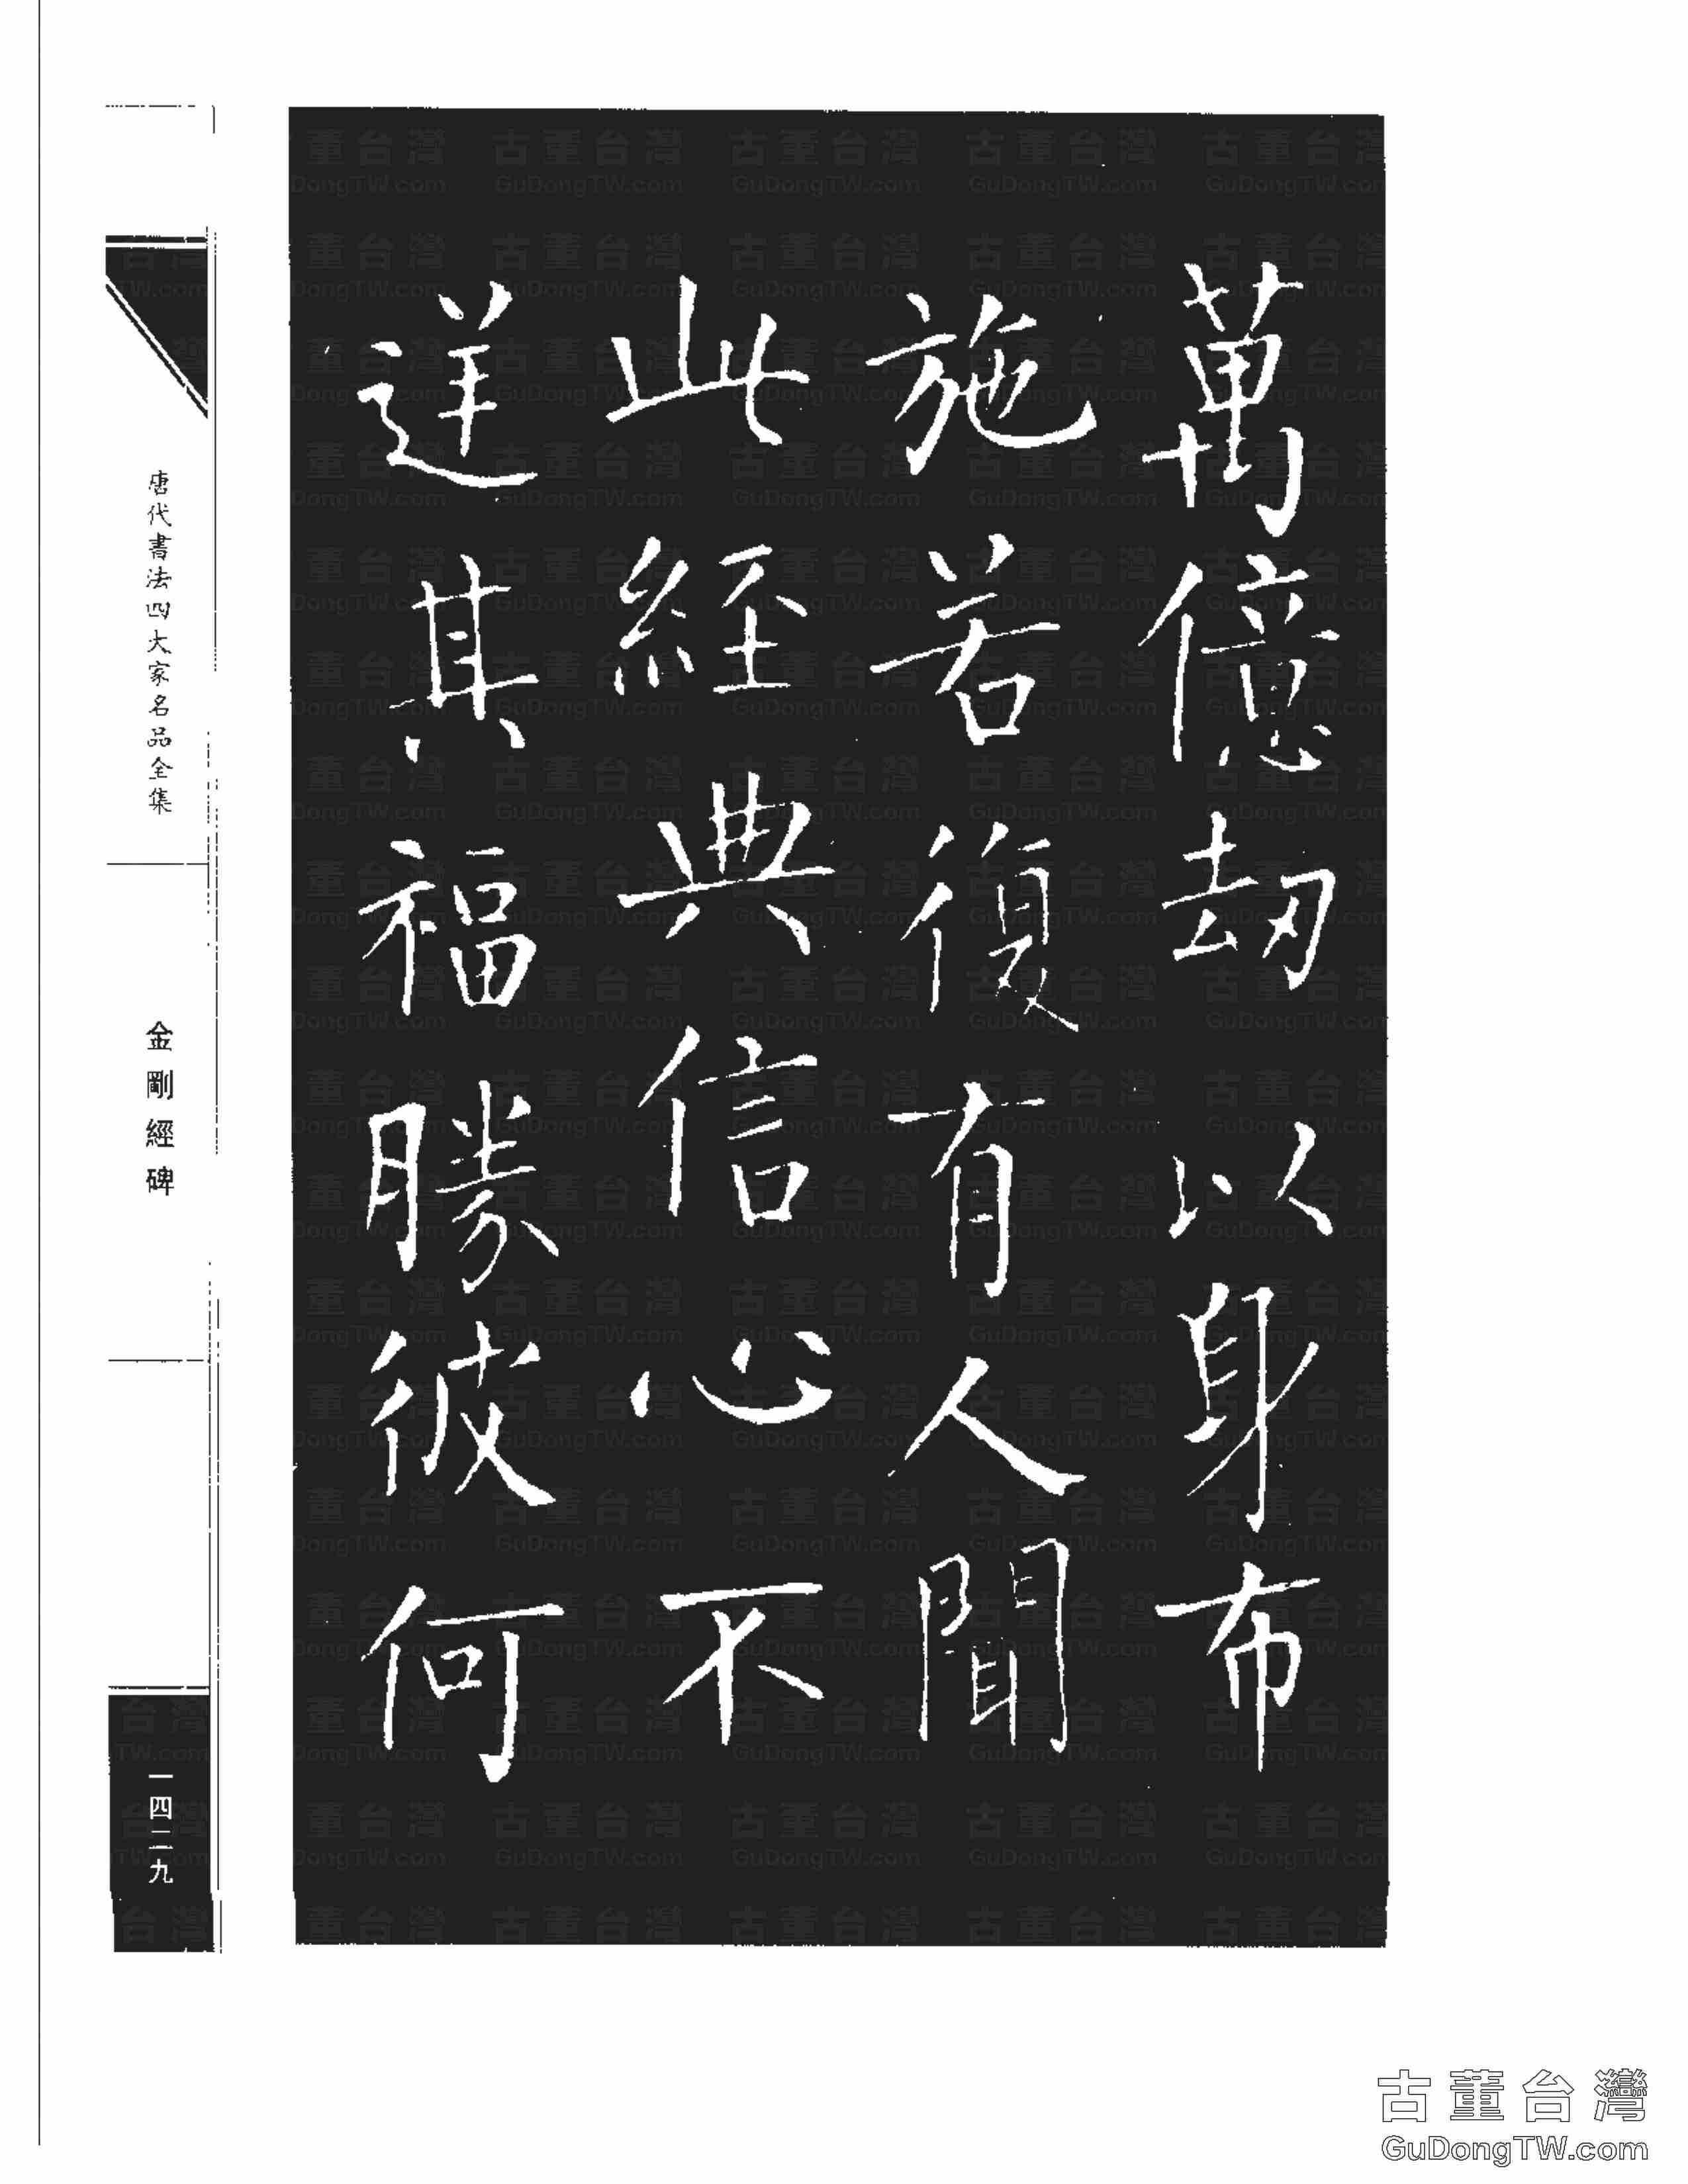 萬億劫以身布
施若復有人聞
此經典信心不
逆其福勝彼何
唐代書法四大家名品全集
金剛經碑
一四二九
古董台灣
GuDongTW.com